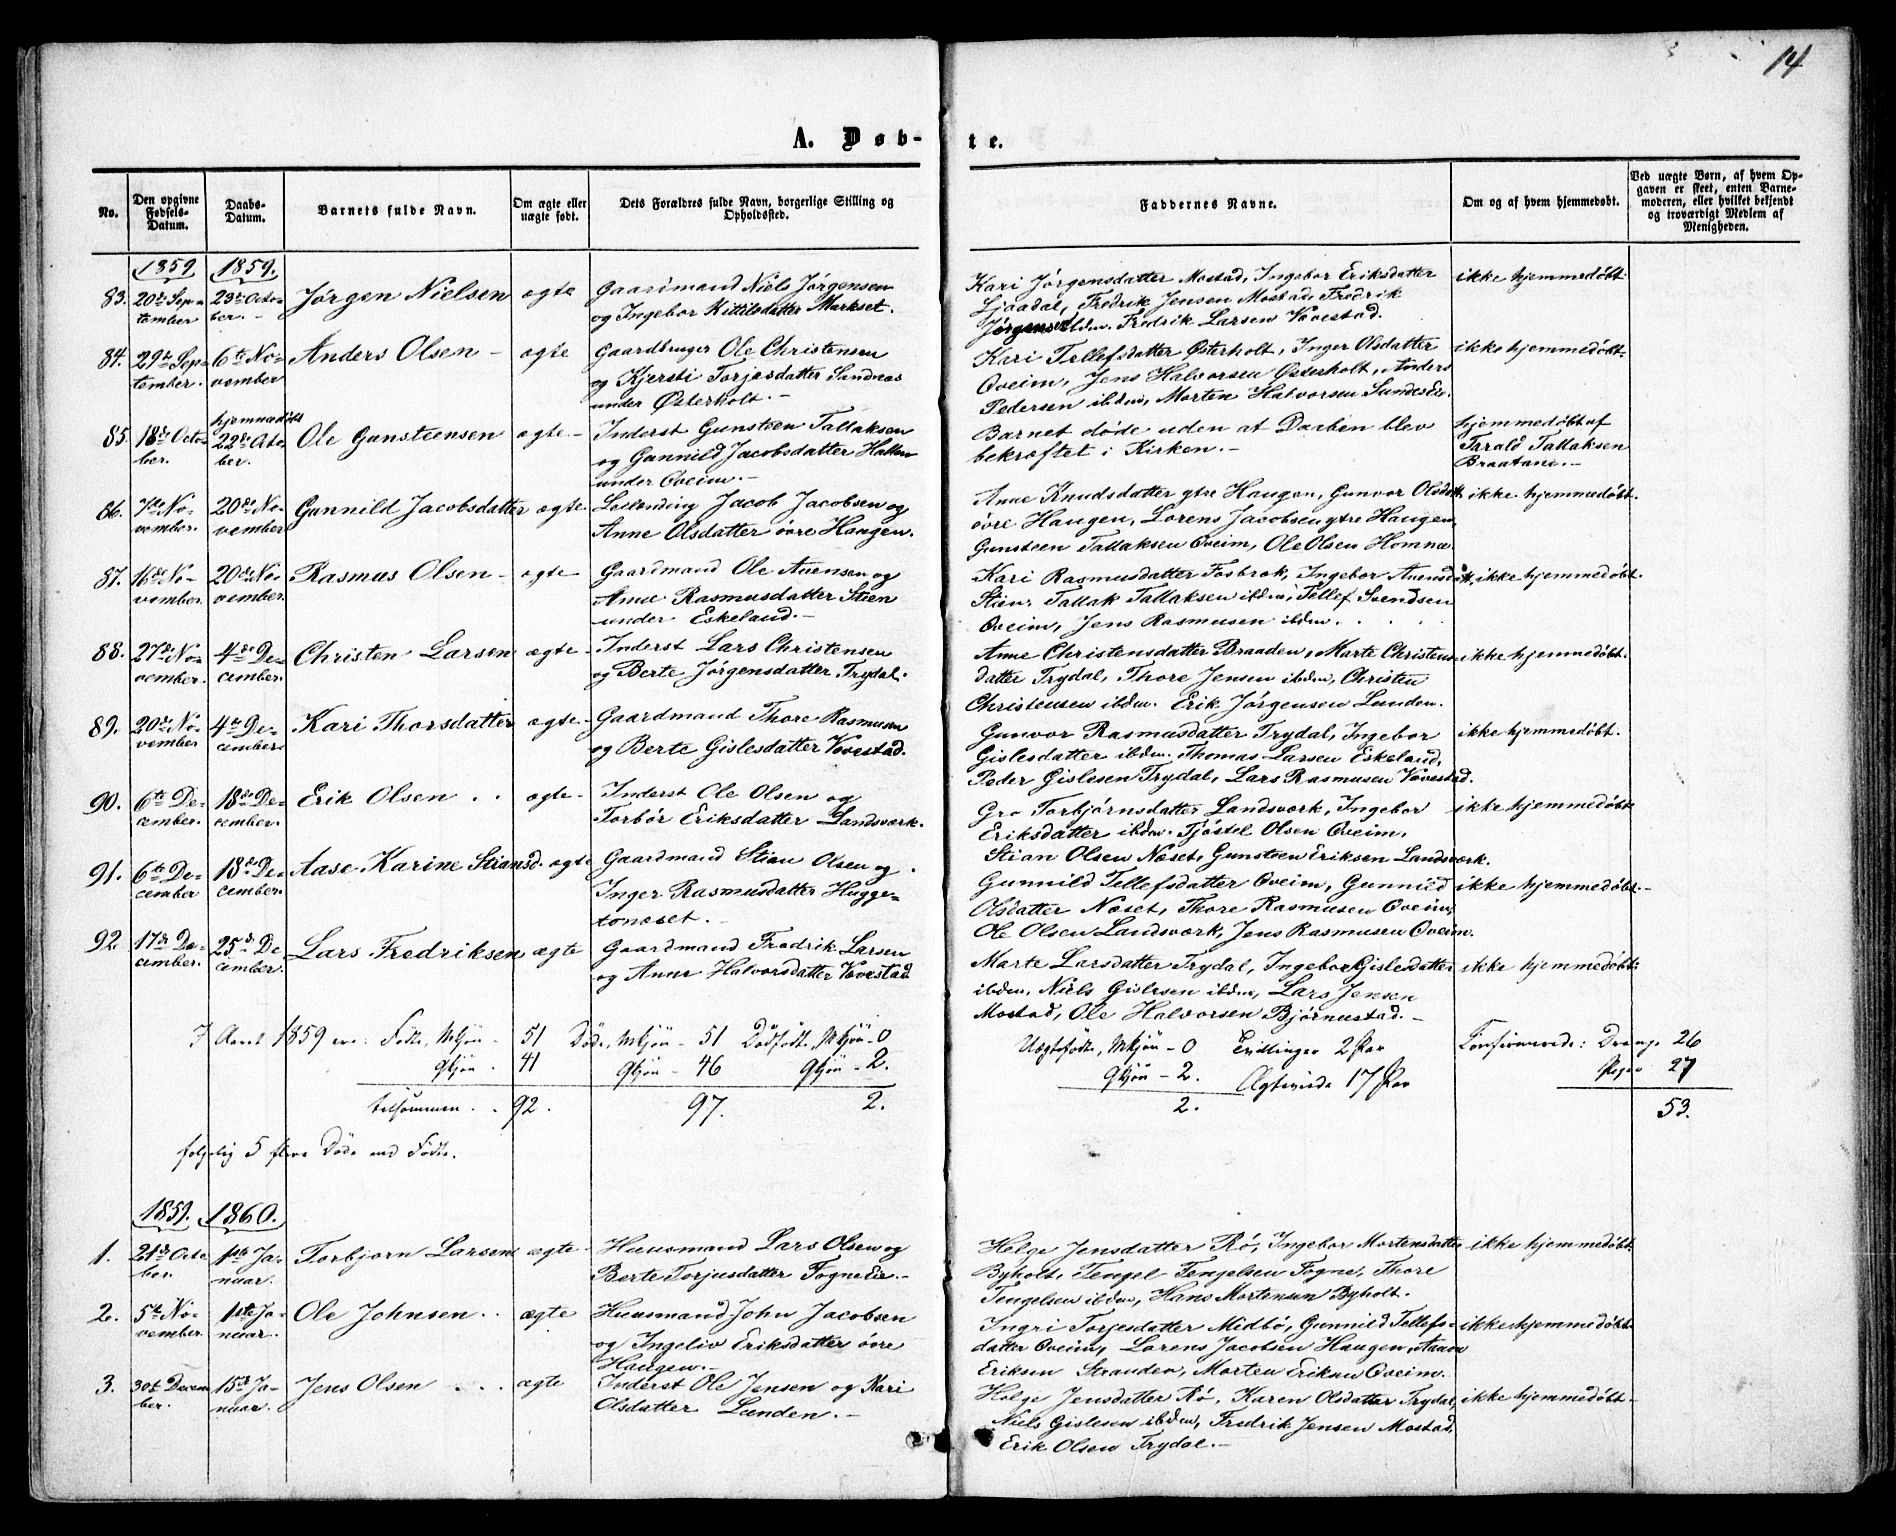 14
A. Døb-
te.
No.
Den opgivne Fødsels-Datum.
Daabs-Datum.
Barnets fulde Navn.
Om ægte eller uægte født.
Dets Forældres fulde Navn, borgerlige Stilling og Opholdssted.
Faddernes Navne.
Om og af hvem hjemmedøbt.
Ved uægte Børn, af hvem Opgaven er skeet, enten Barnemoderen, eller hvilket bekjendt og troværdigt Medlem af Menigheden.
1859 1859.
83. 20de September 23de October. Jørgen Nielsen ægte Gaardmand Niels Jørgensen og Ingebor Kittilsdatter Markset. Kari Jørgensdatter Mostad, Ingebor Eriksdatter Ljaadal, Fredrik Jensen Mostad, Fredrik Jørgensen ibdm. Fredrik Larsen Vovestad. ikke hjemmedøbt.
84. 29de September. 6te November Anders Olsen – ægte Gaardbruger Ole Christensen og Kjersti Torjesdatter Sandnæs under Østerholt. – Kari Tellefsdatter Østerholt, Inger Olsdatter Oveim, Jens Halvorsen Østerholt, Anders Pedersen ibdm, Morten Halvorsen Sundes Eie. ikke hjemmedøbt.
85. 18de October. hjemmedøbt 22de October. Ole Gunsteensen ægte – Inderst Gunsteen Tallaksen og Gunnild Jacobsdatter Hallen under Oveim. – Barnet døde uden at Daaben blev bekræftet i Kirken. – hjemmedøbt af Tarald Tallaksen Braatane. –
86. 7de November. 20de November Gunnild Jacobsdatter ægte Leilending Jacob Jacobsen og Anne Olsdatter øvre Haugen. Anne Knudsdatter ytre Haugen, Gunvor Olsdatt. øvre Haugen, Lorens Jacobsen ytre Haugen, Gunsteen Tallaksen Oveim, Ole Olsen Homme. ikke hjemmedøbt.
87. 16de November. 20de November. Rasmus Olsen – ægte – Gaardmand Ole Auensen og Anne Rasmusdatter Stien under Eskeland. – Kari Rasmusdatter Fosbrok, Ingebor Auensdatt. Stien, Tallak Tallaksen ibdm, Tellef Svendsen Oveim, Jens Rasmusen ibdm. ikke hjemmedøbt.
88. 27de November. 4de December. Christen Larsen ægte – Inderst Lars Christensen og Berte Jørgensdatter Trydal. Anne Christensdatter Braaden, Marte Christensdatter Trydal, Thore Jensen ibdm, Christen Christensen ibdm. Erik Jørgensen Lunden. ikke hjemmedøbt.
89. 20de November 4de December. Kari Thorsdatter ægte – Gaardmand Thore Rasmusen og Berte Gislesdatter Vovestad. Gunvor Rasmusdatter Trydal, Ingebor Gislesdatter ibdm. Thomas Larsen Eskeland, Peder Gislesen Trydal, Lars Rasmusen Vovestad. ikke hjemmedøbt.
90. 6te December. 18de December. Erik Olsen . . ægte – Inderst Ole Olsen og Torbør Eriksdatter Landsværk. Gro Torbjørnsdatter Landsværk, Ingebor Eriksdatter ibdm. Tjøstel Olsen Oveim, Stian Olsen Næset, Gunsteen Eriksen Landsværk. ikke hjemmedøbt
91. 6te December 18de December. Aase Karine Stiansd. ægte Gaardmand Stian Olsen og Inger Rasmusdatter Huggetonæset. – Gunnild Tellefsdatter Oveim, Gunnild Olsdatter Næset, Thore Rasmusen Oveim, Ole Olsen Landsværk, Jens Rasmusen Oveim. ikke hjemmedøbt. –
92. 17de December. 25de December. Lars Fredriksen ægte Gaardmand Fredrik Larsen og Anne Halvorsdatter Vovestad Marte Larsdatter Trydal, Ingebor Gislesdatter ibdm, Niels Gislesen ibdm, Lars Jensen Mostad, Ole Halvorsen Bjørnustad. – ikke hjemmedøbt.
I Aaret 1859 ere: Fødte, Mkjøn – 51 Døde, Mkjøn – 51 Dødfødte, Mkjøn – 0 Uægtefødte, Mkjøn – 0 Tvillinger 2 Par Confirmerede: Drenge 26
Qkjøn . 41 Qkjøn – 46 Qkjøn – 2. Qkjøn – 2. Ægteviede 17 Par Piger 27
tilsammen . . 92. 97. 2. 2. 53.
følgelig 5 flere Døde end Fødte.
1859. 1860.
1. 21de October. 1ste Januar. Torbjørn Larsen ægte – Huusmand Lars Olsen og Berte Torjusdatter Fogne Eie. – Helge Jensdatter Rø, Ingebor Mortensdatter Byholt, Tengel Tengelsen Fogne, Thore Tengelsen ibdm, Hans Mortensen Byholt. ikke hjemmedøbt.
2. 5te November. 1ste Januar. Ole Johnsen . . ægte Huusmand John Jacobsen og Ingeliv Eriksdatter øvre Haugen. – Ingri Torjesdatter Midbø, Gunnild Tellefsdatter Oveim, Lorens Jacobsen Haugen, Aanon Eriksen Stranden, Morten Eriksen Oveim. ikke hjemmedøbt.
3. 30te December. 15de Januar. Jens Olsen . . . ægte Inderst Ole Jensen og Kari Olsdatter Lunden. – Helge Jensdatter Rø, Karen Olsdatter Trydal, Niels Gislesen ibdm, Fredrik Jensen Mostad, Erik Olsen Trydal. – ikke hjemmedøbt –